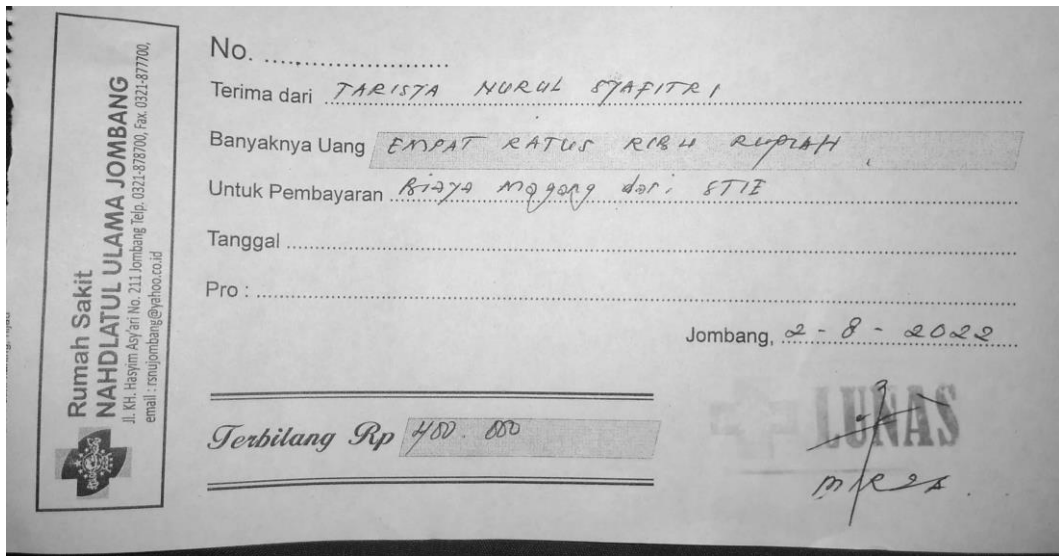 Rumah Sakit
NAHDLATUL ULAMA JOMBANG
Jl. KH. Hasyim Asy'ari No. 211 Jombang Telp. 0321-878700, Fax. 0321-877700,
email : rsnujombang@yahoo.co.id
No. ........................
Terima dari TARISTA NURUL SYAFITRI
Banyaknya Uang EMPAT RATUS RIBU RUPIAH
Untuk Pembayaran Biaya Magang dari STIE
Tanggal
Pro :
Jombang, 2 - 8 - 2022
Terbilang Rp 400.000
LUNAS